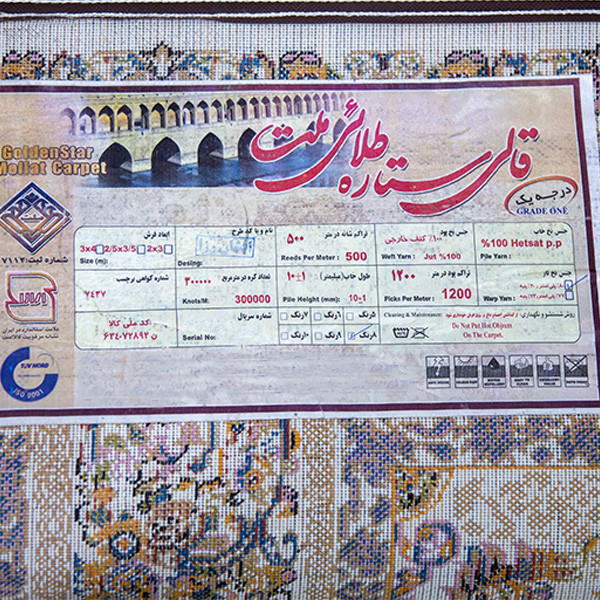 قالی ستاره طلائی ملت
GoldenStar
Mollat Carpet
درجه یک
GRADE ONE
شماره ثبت: ۷۱۱۳
ابعاد فرش
3x4 2/5x3/5 2x3
Size (m):
نام و یا کد طرح
Desing:
تراکم شانه در متر
۵۰۰
Reeds Per Meter: 500
جنس نخ پود
۱۰۰٪ کنف خارجی
Weft Yarn: Jut %100
جنس نخ خاب
%100 Hetsat p.p
Pile Yarn:
شماره گواهی برچسب
۷۴۳۷
تعداد گره در مترمربع
۳۰۰۰۰۰
Knots/M: 300000
طول خاب (میلیمتر) ۱۰±۱
Pile Height (mm): 10-1
تراکم پود در متر
۱۲۰۰
Picks Per Meter: 1200
جنس نخ تار
Warp Yarn:
کد ملی کالا
شماره سریال
Serial No:
۵رنگ ۶رنگ ۷رنگ
۸رنگ ۹رنگ ۱۰رنگ
Cleaning & Maintenance:
Do Not Put Hot Objects
On The Carpet.
علامت استاندارد در ایران
نشانه مرغوبیت کالاست
TUV NORD
ISO 9001